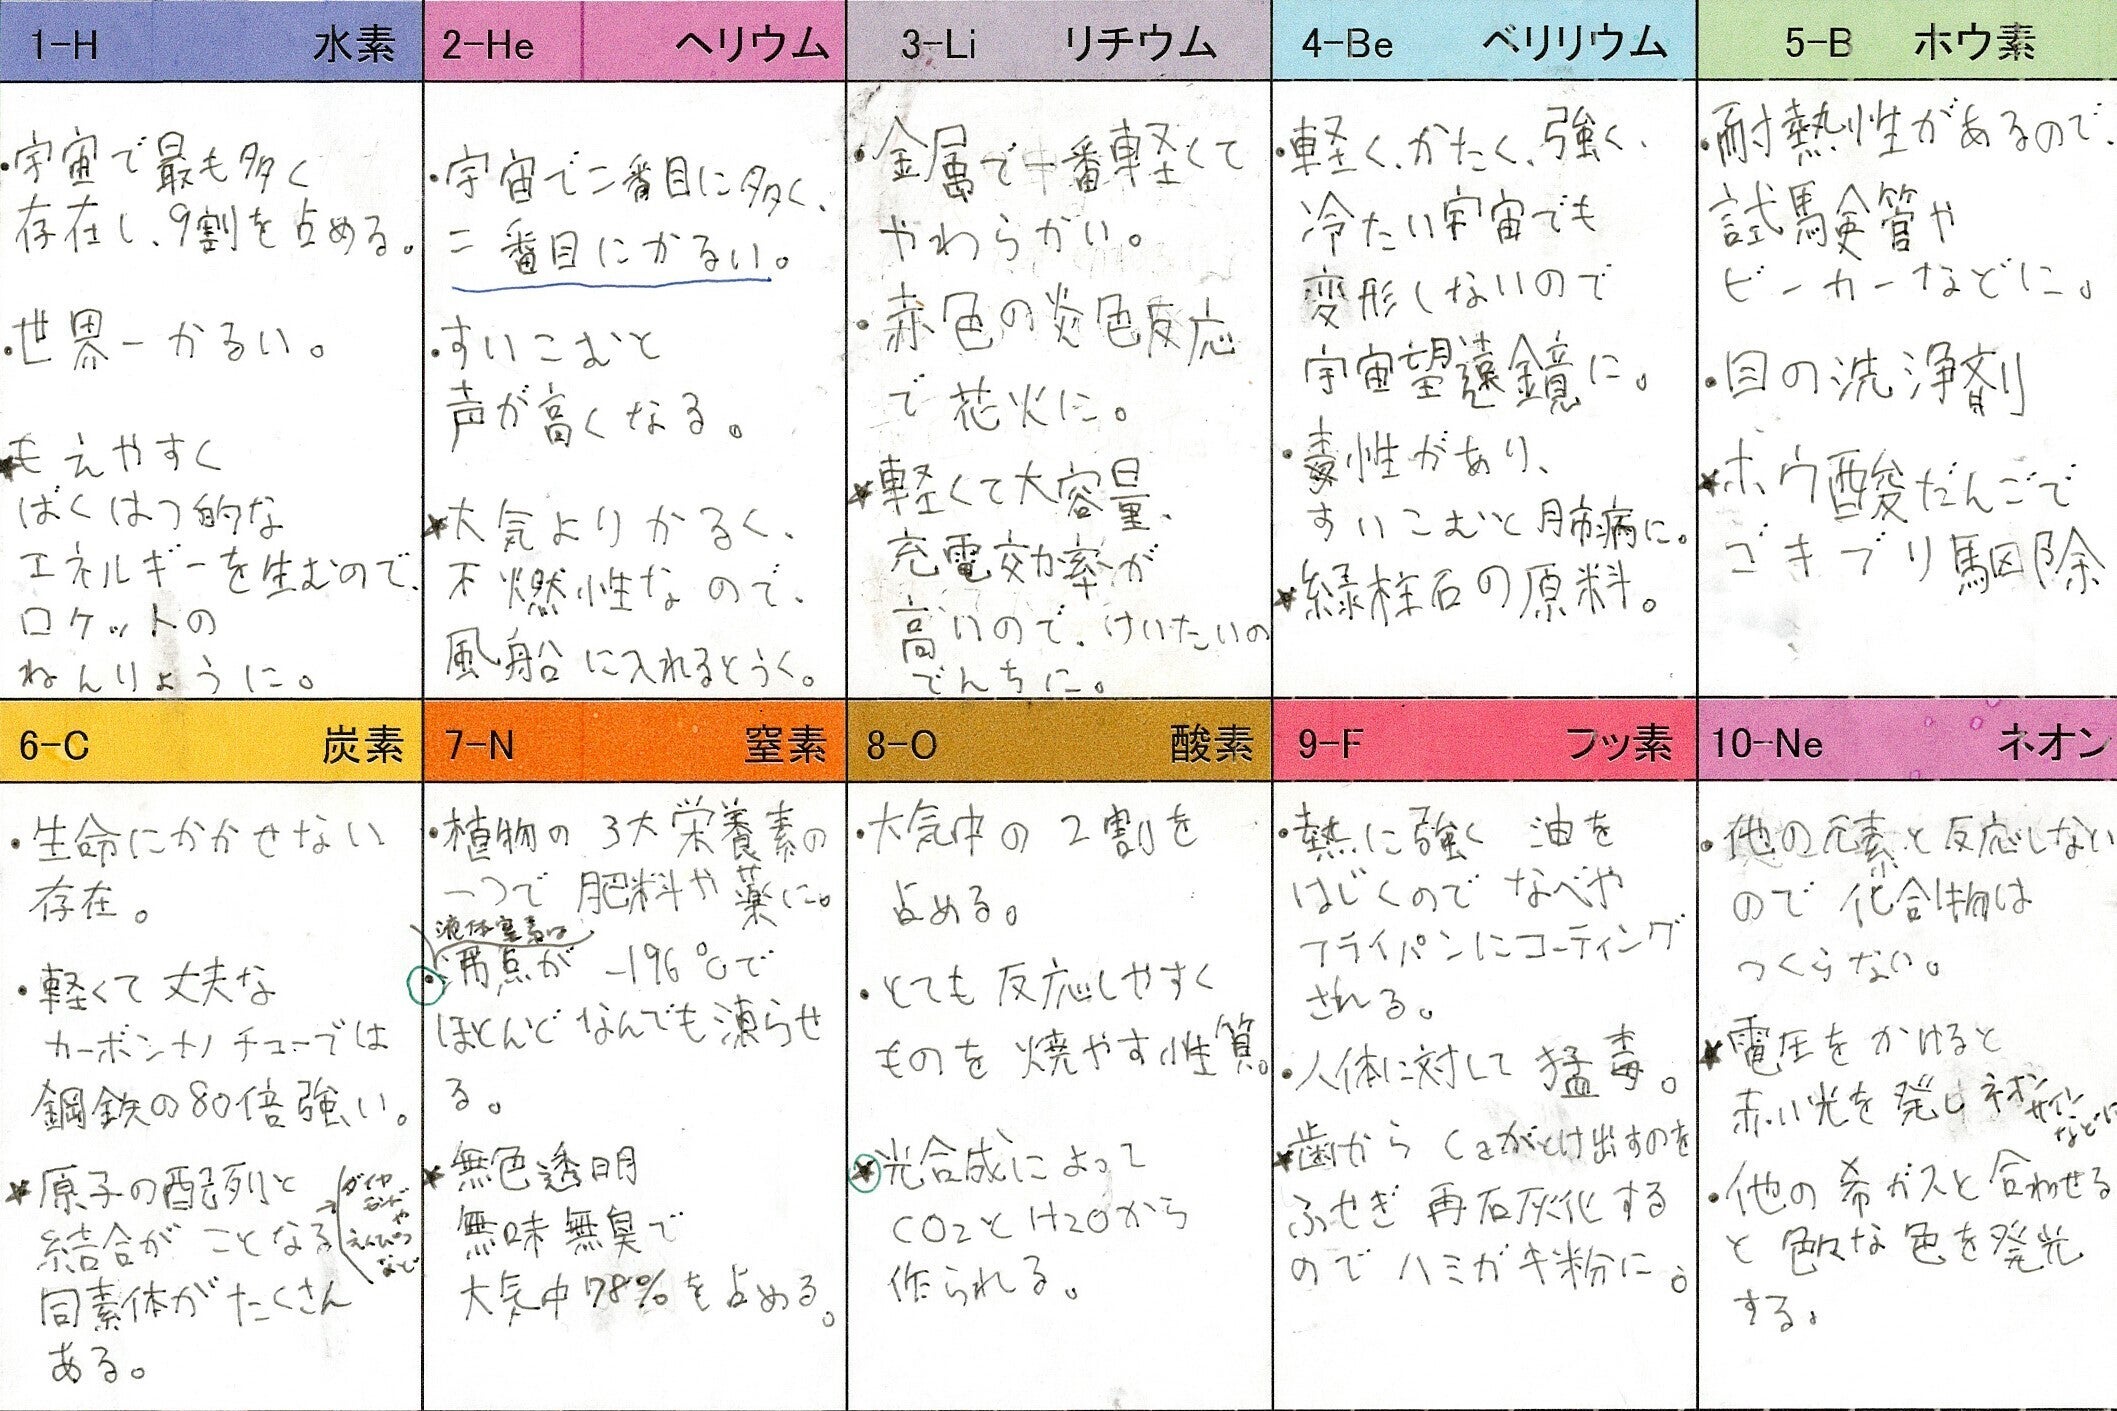 1-H 水素
・宇宙で最も多く
存在し、9割を占める。
・世界一かるい。
★もえやすく
ばくはつ的な
エネルギーを生むので、
ロケットの
ねんりょうに。
2-He ヘリウム
・宇宙で二番目に多く、
二番目にかるい。
・すいこむと
声が高くなる。
★大気よりかるく、
不燃性なので、
風船に入れるとうく。
3-Li リチウム
・金属で一番軽くて
やわらかい。
・赤色の炎色反応
で花火に。
★軽くて大容量、
充電効率が
高いので、けいたいの
でんちに。
4-Be ベリリウム
・軽く、かたく、強く、
冷たい宇宙でも
変形しないので
宇宙望遠鏡に。
・毒性があり、
すいこむと肺病に。
★緑柱石の原料。
5-B ホウ素
・耐熱性があるので、
試験管や
ビーカーなどに。
・目の洗浄剤
★ホウ酸だんごで
ゴキブリ駆除
6-C 炭素
・生命にかかせない
存在。
・軽くて丈夫な
カーボンナノチューブでは
鋼鉄の80倍強い。
★原子の配列と
結合がことなる
同素体がたくさん
ある。
ダイヤ
モンドや
えんぴつ
など
7-N 窒素
・植物の3大栄養素の
一つで肥料や薬に。
液体窒素は
・沸点が -196℃で
ほとんどなんでも凍らせ
る。
★無色透明
無味無臭で
大気中78%を占める。
8-O 酸素
・大気中の2割を
占める。
・とても反応しやすく
ものを燒やす性質。
★光合成によって
CO2とH2Oから
作られる。
9-F フッ素
・熱に強く油を
はじくのでなべや
フライパンにコーティング
される。
・人体に対して猛毒。
★歯からCaがとけ出すのを
ふせぎ再石灰化する
のでハミガキ粉に。
10-Ne ネオン
・他の元素と反応しない
ので化合物は
つくらない。
★電圧をかけると
赤い光を発しネオンサイン
などに
・他の希ガスと合わせる
と色々な色を発光
する。